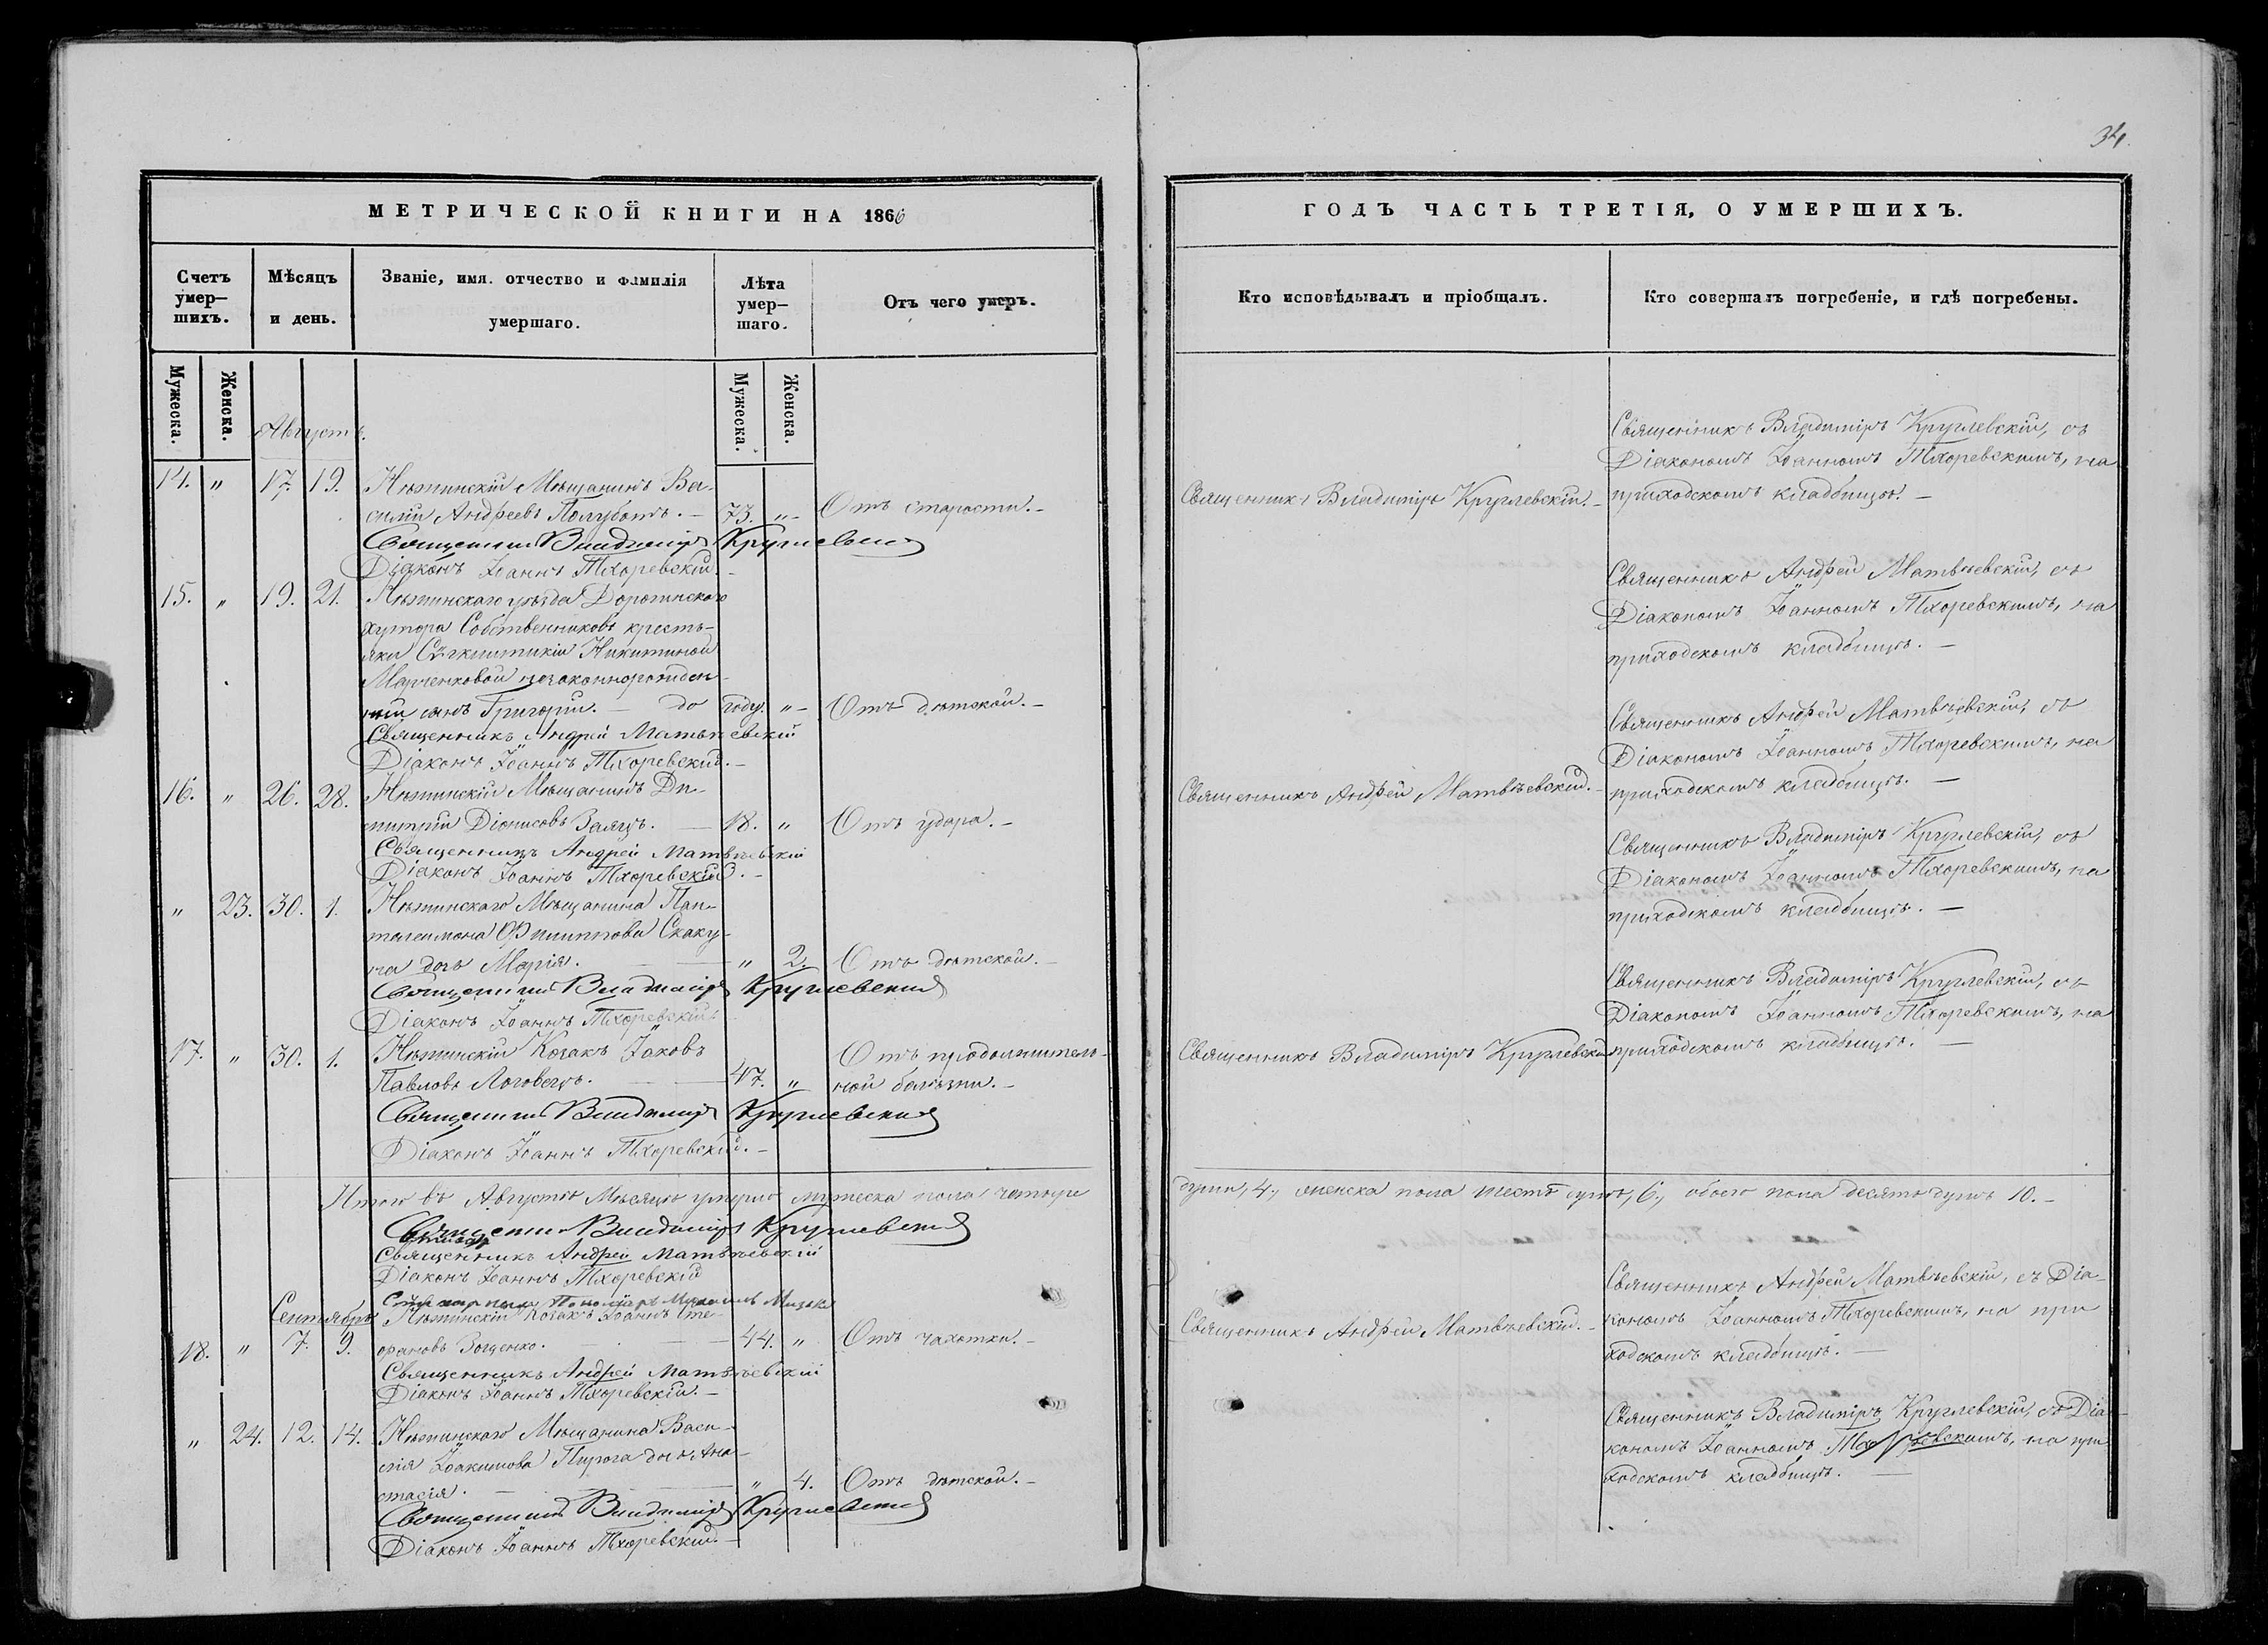 34.
МЕТРИЧЕСКОЙ КНИГИ НА 1866
Счетъ умер–шихъ.
Мѣсяцъ и день.
Званіе, имя. отчество и фамилія
умершаго.
Лѣта умер–шаго.
Отъ чего умеръ.
Мужеска.
Женска.
Мужеска.
Женска.
Августъ.
14. „ 17. 19. Нѣжинскій Мѣщанинъ Ва-
силій Андреевъ Полуботъ. – 73. „ – Отъ старости. –
Священникъ Владиміръ Круглевскій
Діаконъ Іоаннъ Тхоревскій. –
15. „ 19. 21. Нѣжинскаго уѣзда Дорогинскаго
хутора Собственниковъ кресть-
янки Никитиной
Марченковой незаконнорожден-
ный сынъ Григорій. – до году. „ – Отъ дѣтской. –
Священникъ Андрей Матвѣевскій
Діаконъ Іоаннъ Тхоревскій. –
16. „ 26. 28. Нѣжинскій Мѣщанинъ Ди-
митрій Діонисовъ Заяцъ. – 18. „ Отъ удара. –
Священникъ Андрей Матвѣевскій
Діаконъ Іоаннъ Тхоревскій. –
„ 23. 30. 1. Нѣжинскаго Мѣщанина Пан-
телеимона Филиппова Скаку-
на дочь Марія. – „ 2. Отъ дѣтской. –
Священникъ Владиміръ Круглевскій
Діаконъ Іоаннъ Тхоревскій
17. „ 30. 1. Нѣжинскій Козакъ Іаковъ
Павловъ Логовецъ. – 47. „ Отъ продолжитель-
ной болѣзни. –
Священникъ Владиміръ Круглевскій
Діаконъ Іоаннъ Тхоревскій. –
Итого въ Августѣ Мѣсяцѣ умерло мужеска пола четыре
Священникъ Владиміръ Круглевскій
Священникъ Андрей Матвѣевскій
Діаконъ Іоаннъ Тхоревскій
Пономарь
Сентябрь
18. „ 7. 9. Нѣжинскій Козакъ Іоаннъ Сте-
фановъ Зогденко. – 44. „ Отъ чахотки. –
Священникъ Андрей Матвѣевскій
Діаконъ Іоаннъ Тхоревскій. –
„ 24. 12. 14. Нѣжинскаго Мѣщанина Васи-
лія Іоакимова Пирога дочь Ана-
стасія. – „ 4. Отъ дѣтской. –
Священникъ Владиміръ Круглевскій
Діаконъ Іоаннъ Тхоревскій. –
ГОДЪ ЧАСТЬ ТРЕТІЯ, О УМЕРШИХЪ.
Кто исповѣдывалъ и пріобщалъ.
Кто совершалъ погребеніе, и гдѣ погребены.
Священникъ Владиміръ Круглевскій, съ
Діакономъ Іоанномъ Тхоревскимъ, на
Священникъ Владиміръ Круглевскій. – приходскомъ кладбищѣ. –
Священникъ Андрей Матвѣевскій, съ
Діакономъ Іоанномъ Тхоревскимъ, на
приходскомъ кладбищѣ. –
Священникъ Андрей Матвѣевскій, съ
Діакономъ Іоанномъ Тхоревскимъ, на
Священникъ Андрей Матвѣевскій. – приходскомъ кладбищѣ. –
Священникъ Владиміръ Круглевскій, съ
Діакономъ Іоанномъ Тхоревскимъ, на
приходскомъ кладбищѣ. –
Священникъ Владиміръ Круглевскій, съ
Діакономъ Іоанномъ Тхоревскимъ, на
Священникъ Владиміръ Круглевскій приходскомъ кладбищѣ. –
души, 4., женска пола шесть душъ, 6., обоего пола десять душъ 10. –
Священникъ Андрей Матвѣевскій, съ Діа-
Священникъ Андрей Матвѣевскій. – кономъ Іоанномъ Тхоревскимъ, на при
ходскомъ кладбищѣ. –
Священникъ Владиміръ Круглевскій, съ Діа-
кономъ Іоанномъ Тхоревскимъ, на при
ходскомъ кладбищѣ. –